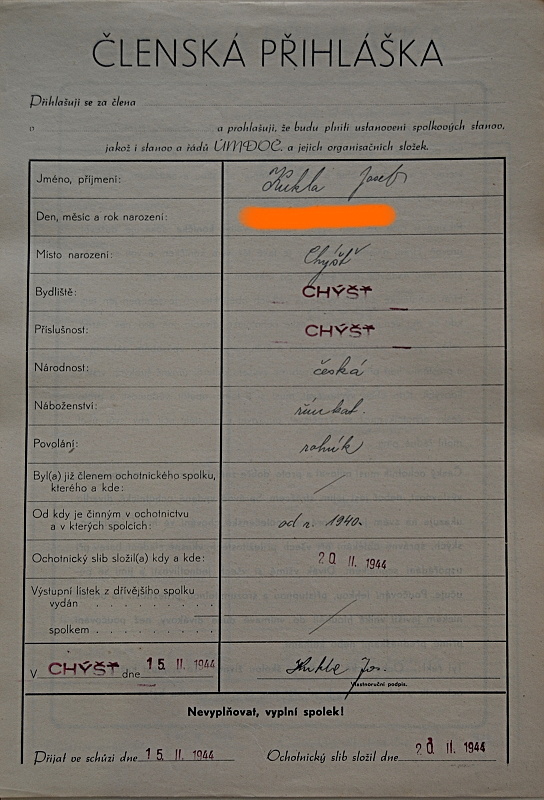 ČLENSKÁ PŘIHLÁŠKA
Přihlašuji se za člena
v a prohlašuji, že budu plniti ustanovení spolkových stanov,
jakož i stanov a řádů ÚMDOČ. a jejich organisačních složek.
Jméno, příjmení: Kukla Josef
Den, měsíc a rok narození:
Místo narození: Chýšť
Bydliště: CHÝŠŤ
Příslušnost: CHÝŠŤ
Národnost: česká
Náboženství: řím. kat.
Povolání: rolník
Byl(a) již členem ochotnického spolku,
kterého a kde: /
Od kdy je činným v ochotnictvu
a v kterých spolcích: od r. 1940.
Ochotnický slib složil(a) kdy a kde: 20 II. 1944
Výstupní lístek z dřívějšího spolku
vydán . . . . . . . . . . .
spolkem . . . . . . . . . . /
V CHÝŠŤ dne 15 II. 1944 Kukla Jos.
Vlastnoruční podpis.
Nevyplňovat, vyplní spolek!
Přijat ve schůzi dne 15 II. 1944 Ochotnický slib složil dne 20 II. 1944